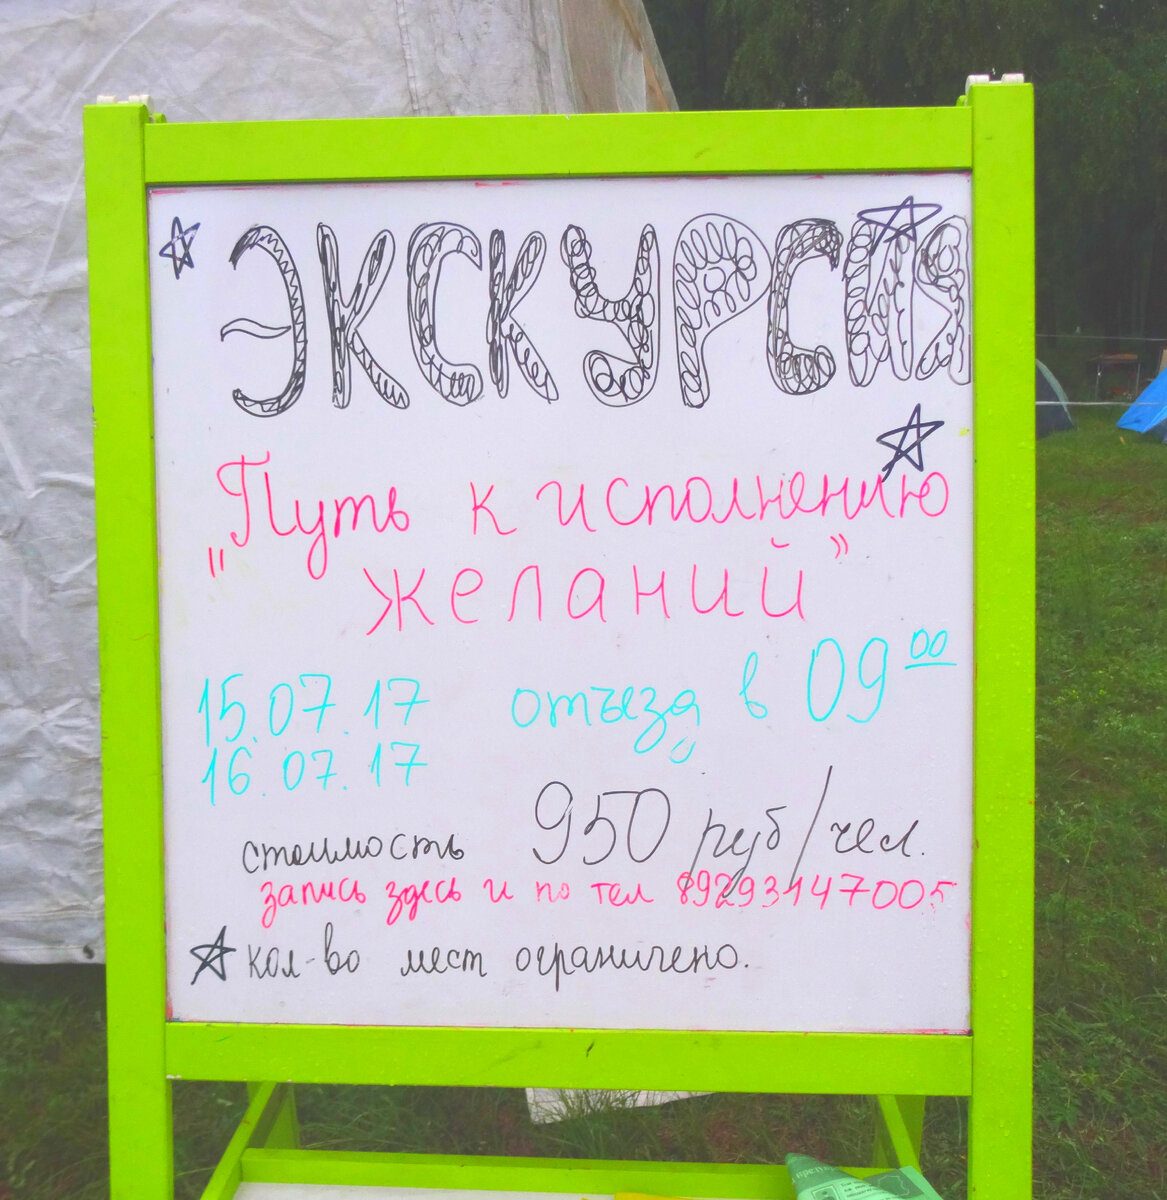 ЭКСКУРСИЯ
"Путь к исполнению
желаний"
15.07.17 отъезд в 09 00
16.07.17
стоимость 950 руб/чел.
запись здесь и по тел 89293147005
кол-во мест ограничено.